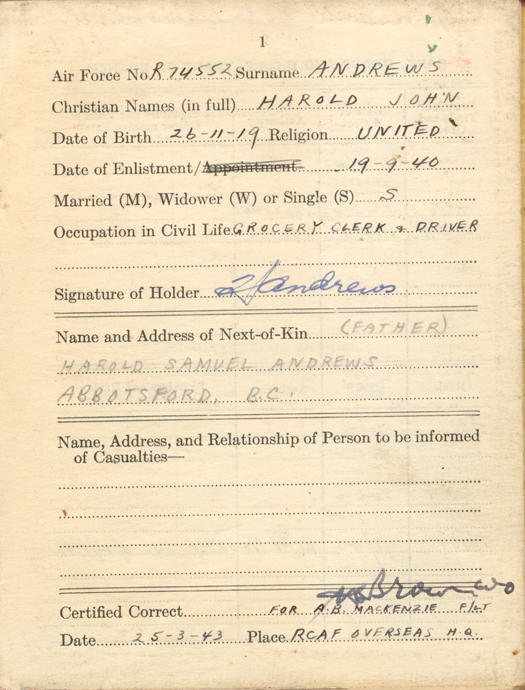 1
Air Force No R74552 Surname ANDREWS
Christian Names (in full) HAROLD JOHN
Date of Birth 26-11-19 Religion UNITED
Date of Enlistment/Appointment 19-9-40
Married (M), Widower (W) or Single (S) S
Occupation in Civil Life GROCERY CLERK & DRIVER
Signature of Holder Andrews
Name and Address of Next-of-Kin (FATHER)
HAROLD SAMUEL ANDREWS
ABBOTSFORD, B.C.
Name, Address, and Relationship of Person to be informed
of Casualties—
Brown
Certified Correct FOR A.B. MACKENZIE F/LT
Date 25-3-43 Place RCAF OVERSEAS H.Q.